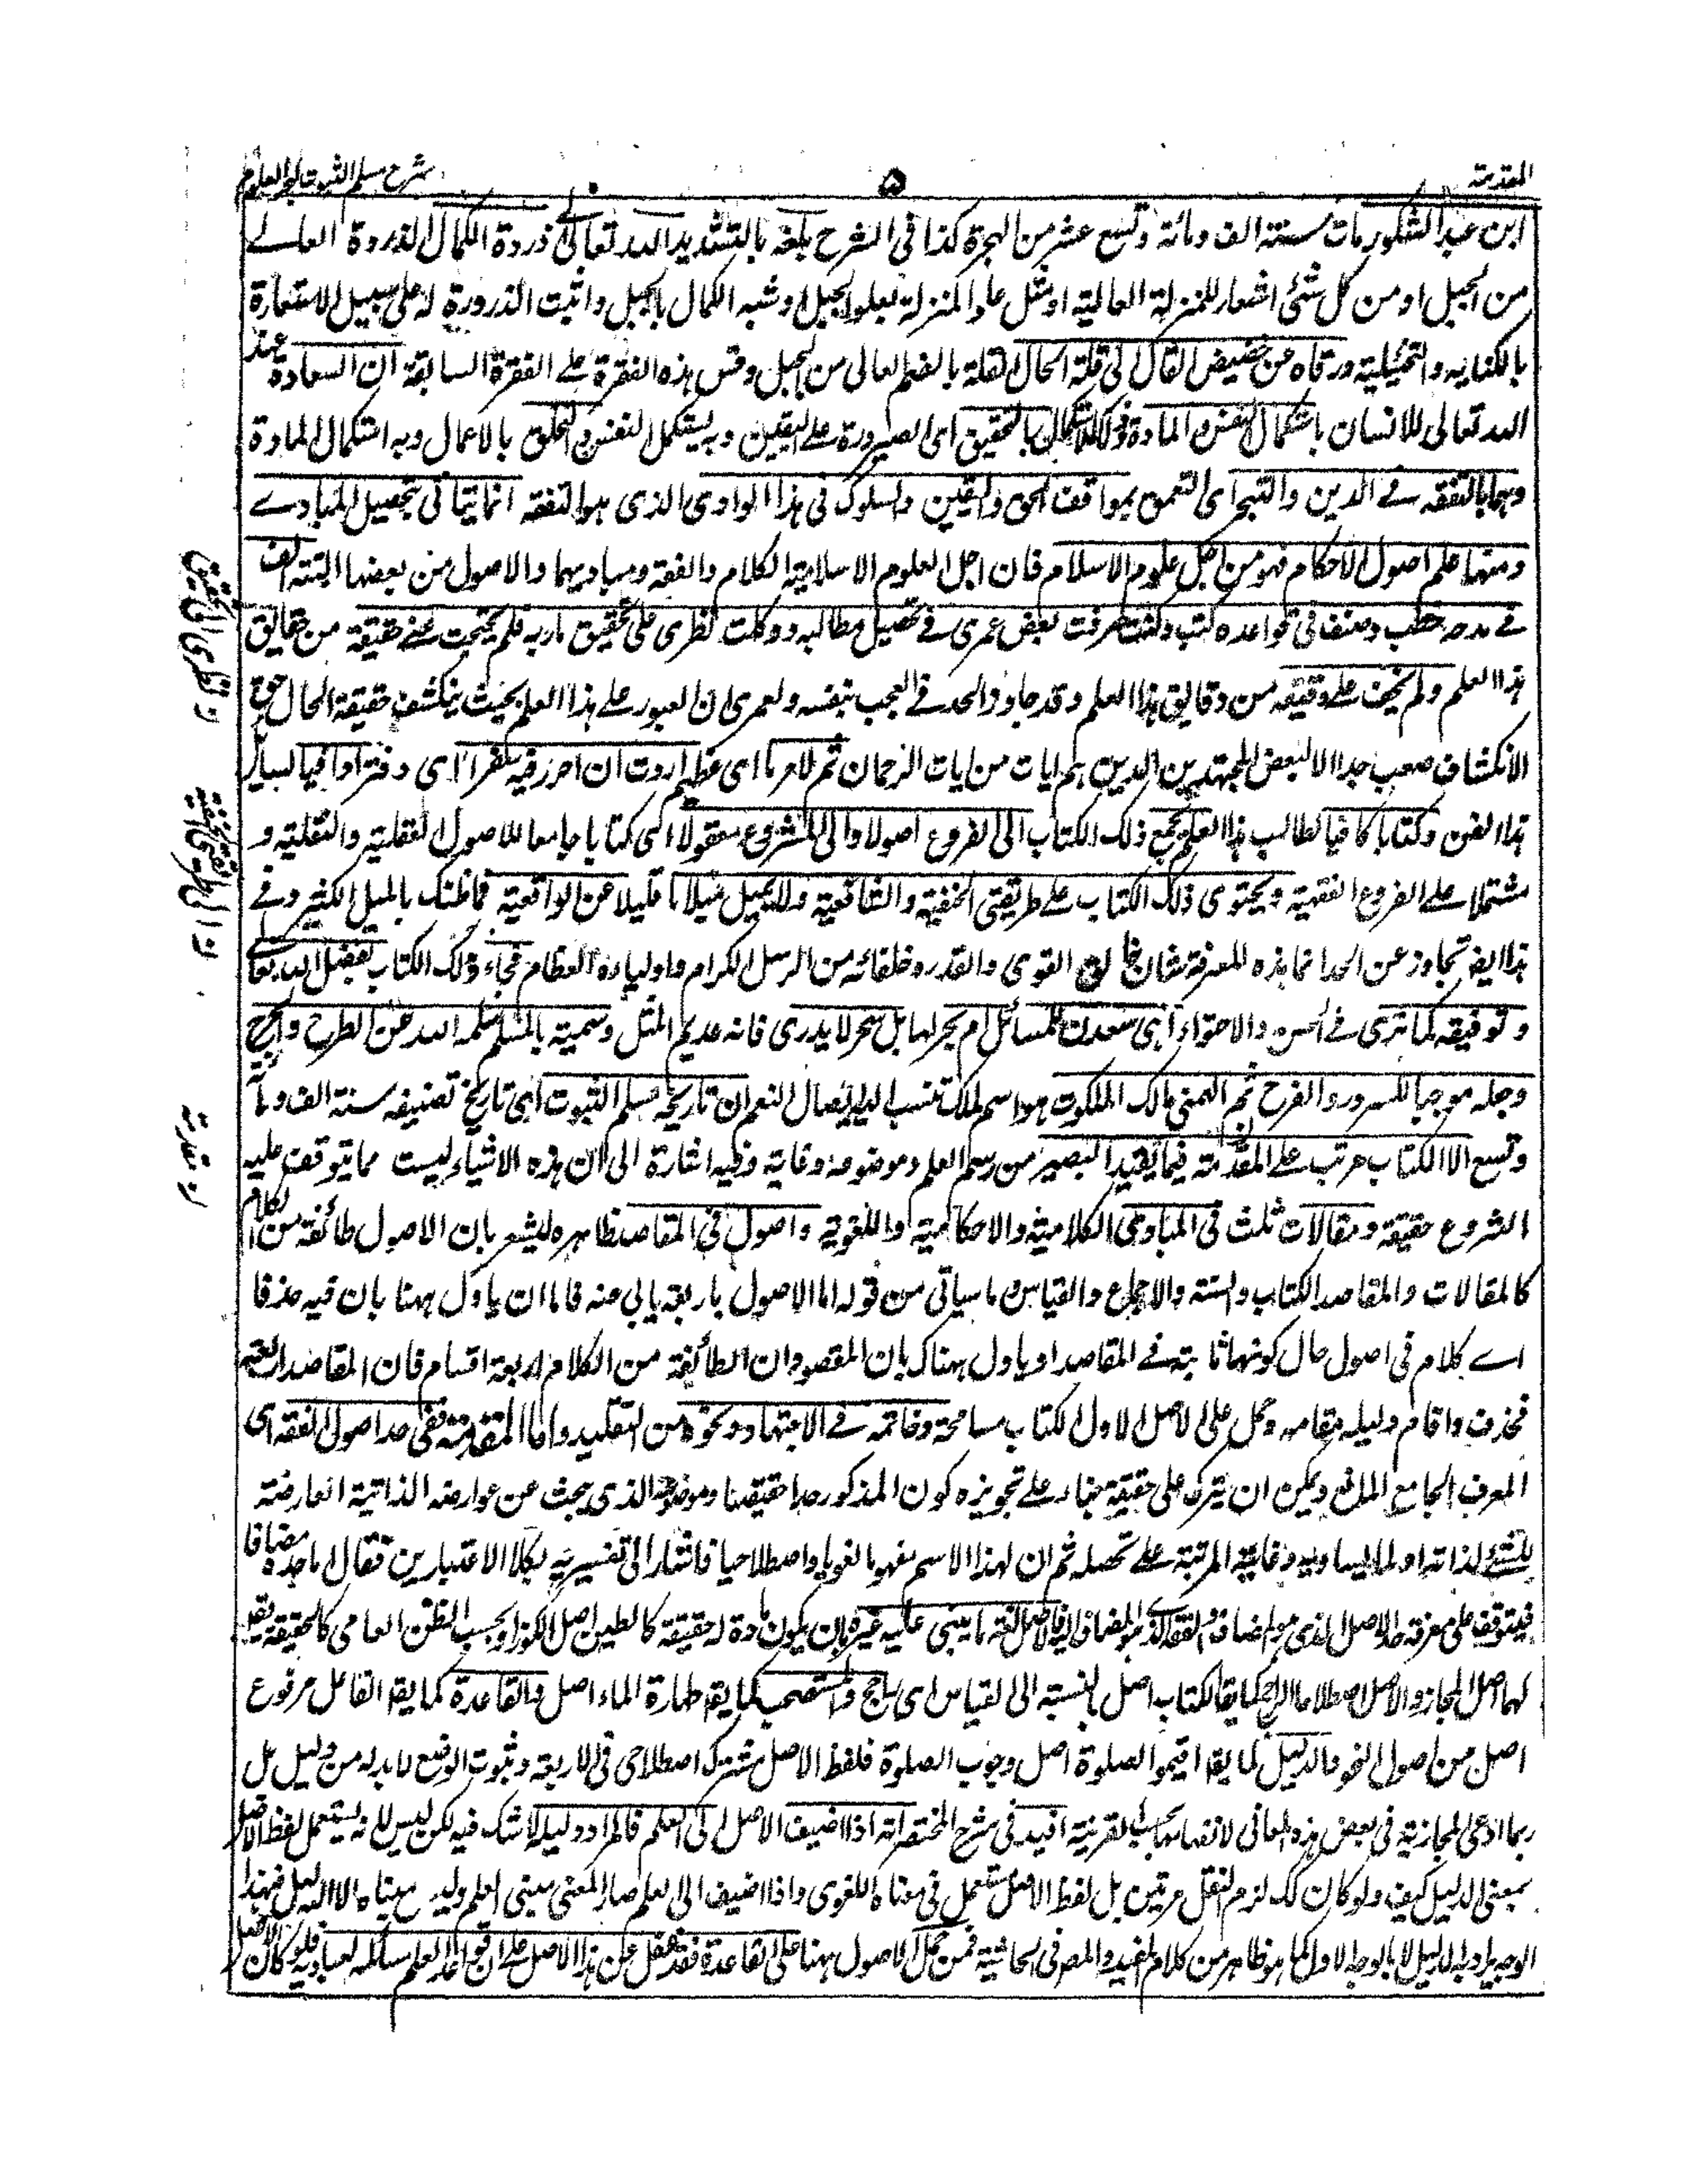 المقدمة
٥
شرح مسلم الثبوت لبحر العلوم
ابن عبد الشكور مات سنة الف ومائة وتسع عشر من الهجرة كذا فى الشرح بلغه بالتشديد الله تعالى ذروة الكمال الذروة العالے
من الجبل او من كل شئ اشعار للمنزلة العالية او مثل علو المنزلة بعلو الجبل او شبه الكمال بالجبل واثبت الذرورة له على سبيل الاستعارة
بالكنايه والتخئيلية ورقاه عن حضيض القال الى قلة الحال القلة بالضم العالى من الجبل وقس هذه الفقرة علے الفقرة السابقة ان السعادة عند
الله تعالى للانسان باستكمال النفس والمادة بالتحقيق اى الصيرورة علے اليقين وبه يستكمل النفس والتخلق بالاعمال وبه استكمال المادة
وهما بالتفقه فے الدين والتبحر اى التعمق بمواقف الحق واليقين والسلوك فى هذا الوادى الذى هو التفقه انما يتاتى بتحصيل المبادے
ومنها علم اصول الاحكام فهو من اجل علوم الاسلام فان اجل العلوم الاسلامية الكلام والفقه ومباديهما والاصول من بعضها التته الف
فے مدحه خطب وصنف فى قواعده كتب وكنت صرفت بعض عمرى فے تحصيل مطالبه ووكلت نظرى على تحقيق ماربه فلم يحتجب عنے حقيقة من حقائق
هذا العلم ولم يخف علے دقيقه من دقايق هذا العلم وقد جاوز الحد فے العجب بنفسه ولعمرى ان العبور علے هذا العلم بحيث ينكشف حقيقة الحال حق
الانكشاف صعب جدا الا لبعض المجتهدين الذين هم ايات من ايات الرحمان ثم لامر ما اى عظيم اردت ان احرر فيه سفرا اى دفترا وافيا لسائل
هذا الفن وكتابا كافيا لطالب هذا العلم يجمع ذلك الكتاب الى الفروع اصولا والى المشروع معقولا اى كتابا جامعا للاصول العقلية والنقلية و
مشتملا علے الفروع الفقهية ويحتوى ذلك الكتاب علے طريقتى الحنفية والشافعية ولا يميل ميلا ما قليلا عن الواقعية فما ظنك بالميل الكثير وفے
هذا ايضا تجاوز عن الحد انما هذه المعرفة شان خالق القوى والقدر وخلفائه من الرسل الكرام واولياءه العظام فجاء ذلك الكتاب بفضل الله تعالى
وتوفيقه كما ترى فے الحسن والاحتواء ابى معدن للمسائل ام بحر لها بل سحر لا يدرى فانه عديم المثل وسميته بالمسلم سلمه الله عن الطرح والجرح
وجعله موجبا للسرور والفرح ثم الهمنى مالك الملكوت هو اسم لملك تنسب اليه ايصال النعم ان تاريخه مسلم الثبوت اى تاريخ تصنيفه سنة الف ومأة
وتسع الا الكتاب مرتب علے المقدمة فيما يفيد البصيرة من رسم العلم وموضوعه وغاية وفيه اشارة الى ان هذه الاشياء ليست مما يتوقف عليه
الشروع حقيقة ومقالات ثلث فى المبادى الكلامية والاحكامية واللغوية واصول فى المقاصد ظاهره ليشعر بان الاصول طائفة من الكلام
كالمقالات والمقاصد الكتاب والسنة والاجماع والقياس وما سياتى من قوله اما الاصول باربعة يابى عنه فاما ان ياول ههنا بان فيه حذفا
اے كلام فى اصول حال كونها ثابتة فے المقاصد او ياول هناك بان المقصود ان الطائفة من الكلام اربعة اقسام فان المقاصد اربعة
فحذف واقام دليله مقامه وحمل على الاصل الاول الكتاب مسامحة وخاتمه فے الاجتهاد ونحوه من التقليد واما المقدمة ففى حد اصول الفقه اى
المعرف الجامع المانع ويمكن ان يترك على حقيقة بناء علے تجويزه كون المذكور حدا حقيقيا وموضوعه الذى يبحث عن عوارضه الذاتية العارضة
للشئ لذاته او لما يساويه وغايته المرتبة علے تحصله ثم ان لهذا الاسم مفهوما لغويا واصطلاحيا فاشار الى تفسيره بكلا الاعتبارين فقال اما حده مضافا
فيتوقف على معرفة حد الاصل الذى هو المضاف والفقه الذى هو المضاف اليه فالاصل لغة ما يبتنى عليه غيره بان يكون مادة له حقيقة كالطين اصل الكوز او بحسب الظن العامى كالحقيقة يقال
لها اصل المجاز والاصل اصطلاحا الراجح كما يقال الكتاب اصل بالنسبة الى القياس اى راجح والمستصحب كما يقال طهارة الماء اصل والقاعدة كما يقال الفاعل مرفوع
اصل من اصول النحو والدليل كما يقال اقيموا الصلوة اصل وجوب الصلوة فلفظ الاصل مشترك اصطلاحى فى الاربعة وثبوت الوضع لابد له من دليل بل
ربما ادعى المجازية فى بعض هذه المعانى لانفهامها بحسب القرينة افيد فى شرح المختصر انه اذا اضيف الاصل الى العلم فالمراد دليله لا شك فيه لكن ليس لانه يستعمل لفظ الاصل
بمعنى الدليل كيف ولو كان كك لزم النقل مرتين بل لفظ الاصل مستعمل فى معناه اللغوى واذا اضيف الى العلم صار المعنى مبنى العلم وليس مبناه الا الدليل فبهذا
الوجه يراد به الدليل لا بالوجه الاول كما هو ظاهر من كلام المفيد والمص فى الحاشية فمن حمل الاصول ههنا على القاعدة فقد غفل عن هذا الاصل علے ان قواعد العلم مسائله لا مباديه فلو كان الاصل